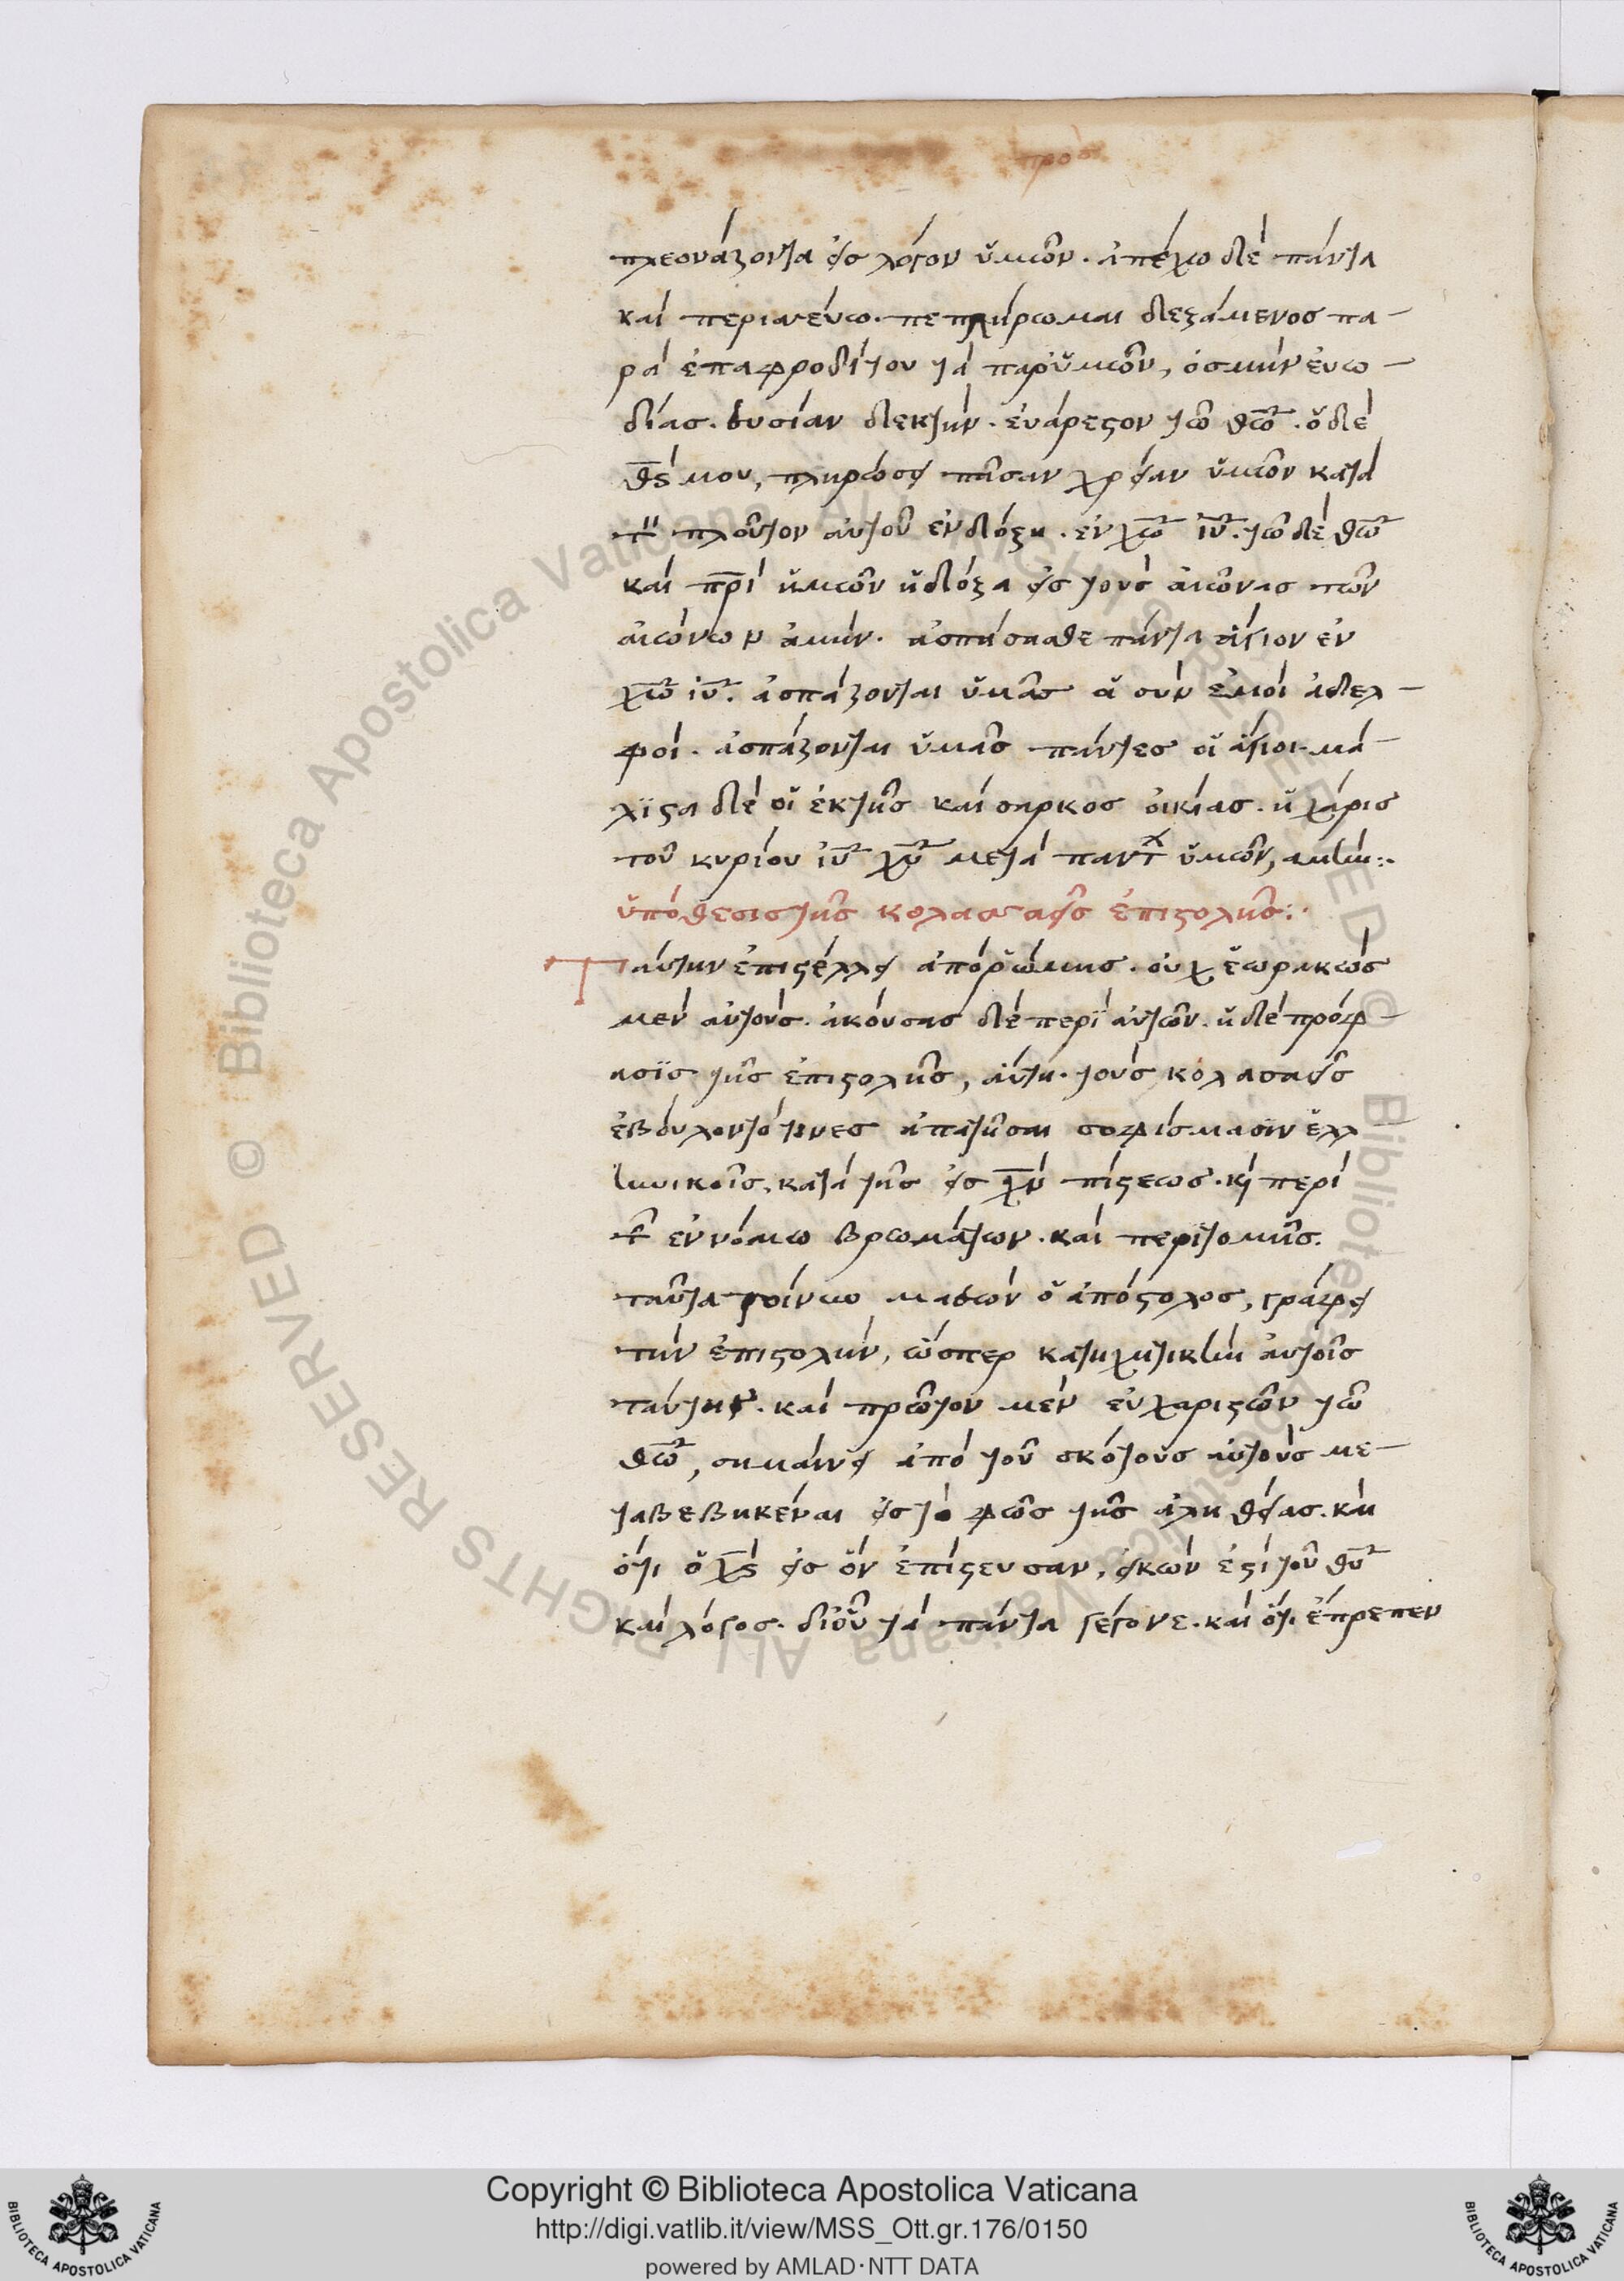 προσ
πλεονάζοντα εἰσ λόγον ὑμῶν. ἀπέχω δὲ πάντα
καὶ περισσεύω. πεπλήρωμαι δεξάμενοσ πα-
ρὰ ἐπαφροδίτου τὰ παρ' ὑμῶν, ὀσμὴν ἐυω-
δίασ. θυσίαν δεκτὴν. ἐυάρεϛον τῶ θ̅ω̅. ὁ δὲ
θ̅ς̅ μου, πληρώσει πᾶσαν χρείαν ὑμῶν κατὰ
τὸν πλοῦτον ἀυτοῦ ἐν δόξη. ἐν χ̅ω̅ ἰ̅υ̅. τῶ δὲ θ̅ω̅
καὶ π̅ρ̅ὶ ἡμῶν ἡ δόξα εἰσ τοὺσ ἀιῶνασ τῶν
αἰώνων ἀμήν. ἀσπάσασθε πάντα ἅγιον ἐν
χ̅ω̅ ἰ̅υ̅. ἀσπάζονται ὑμᾶσ οἱ σὺν ἐμοὶ ἀδελ-
φοί. ἀσπάζονται ὑμᾶσ πάντεσ οἱ ἅγιοι. μά-
λϊϛα δὲ οἱ ἐκ τῆσ καίσαρκοσ οἰκίασ. ἡ χάρισ
τοῦ κυρίου ἰ̅υ̅ χ̅υ̅ μετὰ παντων ὑμῶν, ἀμήν:.
ὑπόθεσισ τῆσ κολασσαεῖσ ἐπιϛολῆσ:.
Ταύτην ἐπιϛέλλει ἀπὸ ῥώμησ. οὐχ ἑωρακὼσ
μὲν ἀυτοὺσ. ἀκούσασ δὲ περὶ ἀυτῶν. ἡ δὲ πρόφ-
ασϊσ τῆσ ἐπιϛολῆσ, ἅυτη. τοὺσ κολασαεῖσ
ἐβόυλοντό τινεσ ἀπατῆσαι σοφίσμασϊν ἑλλ
ηνικοῖσ, κατὰ τῆσ εἰσ χ̅ν̅ πίϛεωσ. κὶ περὶ
τῶν ἐν νόμω βρωμάτων. καὶ περιτομῆσ.
ταῦτα τοίνυν μαθὼν ὁ ἀπόϛολοσ, γράφει
τὴν ἐπιϛολὴν, ὥσπερ κατηχητικὴν ἀυτοῖσ
ταύτην. καὶ πρῶτον μὲν ἐυχαριϛῶν τῶ
θ̅ω̅, σημαίνει ἀπὸ τοῦ σκότουσ ἀυτοὺσ με-
ταβεβηκέναι εἰσ τὸ φῶσ τῆσ ἀληθείασ. καὶ
ὅτι ὁ χ̅ς̅ εἰσ ὃν ἐπίϛευσαν, εἰκών ἐϛὶ τοῦ θ̅υ̅
καὶ λόγοσ. δι' οὗ τὰ πάντα γέγονε. καὶ ὅτι ἔπρεπεν
Copyright © Biblioteca Apostolica Vaticana
http://digi.vatlib.it/view/MSS_Ott.gr.176/0150
powered by AMLAD·NTT DATA